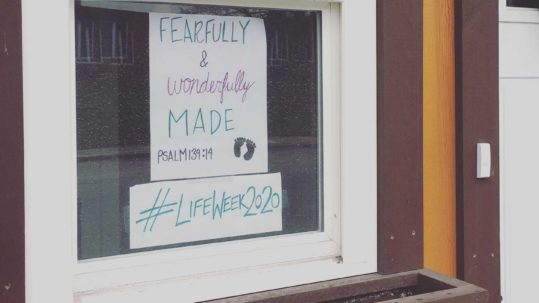 FEARFULLY
&
wonderfully
MADE
PSALM 139:14
#LIFEWEEK2020